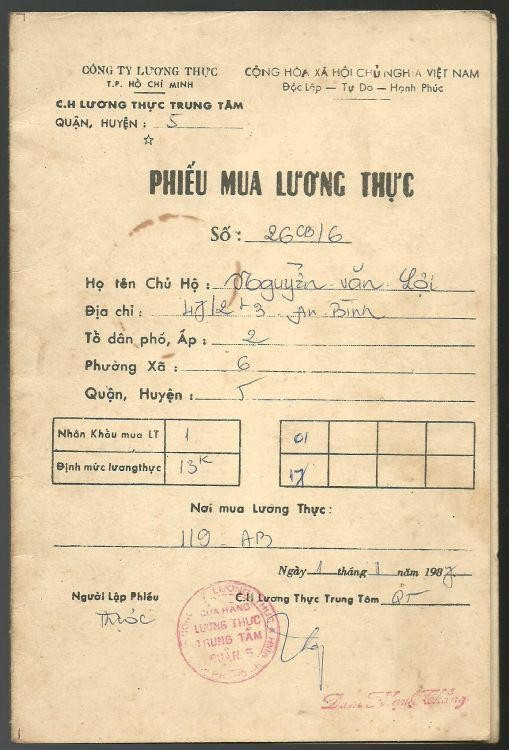 CÔNG TY LƯƠNG THỰC
T.P. HỒ CHÍ MINH
C.H LƯƠNG THỰC TRUNG TÂM
QUẬN, HUYỆN : 5
CỘNG HÒA XÃ HỘI CHỦ NGHĨA VIỆT NAM
Độc Lập — Tự Do — Hạnh Phúc
PHIẾU MUA LƯƠNG THỰC
Số : 26CB/6
Họ tên Chủ Hộ : Nguyễn Văn Lợi
Địa chỉ : An Bình
Tổ dân phố, Ấp : 2
Phường Xã : 6
Quận, Huyện : 5
Nhân Khẩu mua LT 1 01
Định mức lương thực 13K 17
Nơi mua Lương Thực :
119 - AB
Ngày 1 tháng 1 năm 1987
Người Lập Phiếu C.H Lương Thực Trung Tâm
CỬA HÀNG
LƯƠNG THỰC
TRUNG TÂM
QUẬN 5